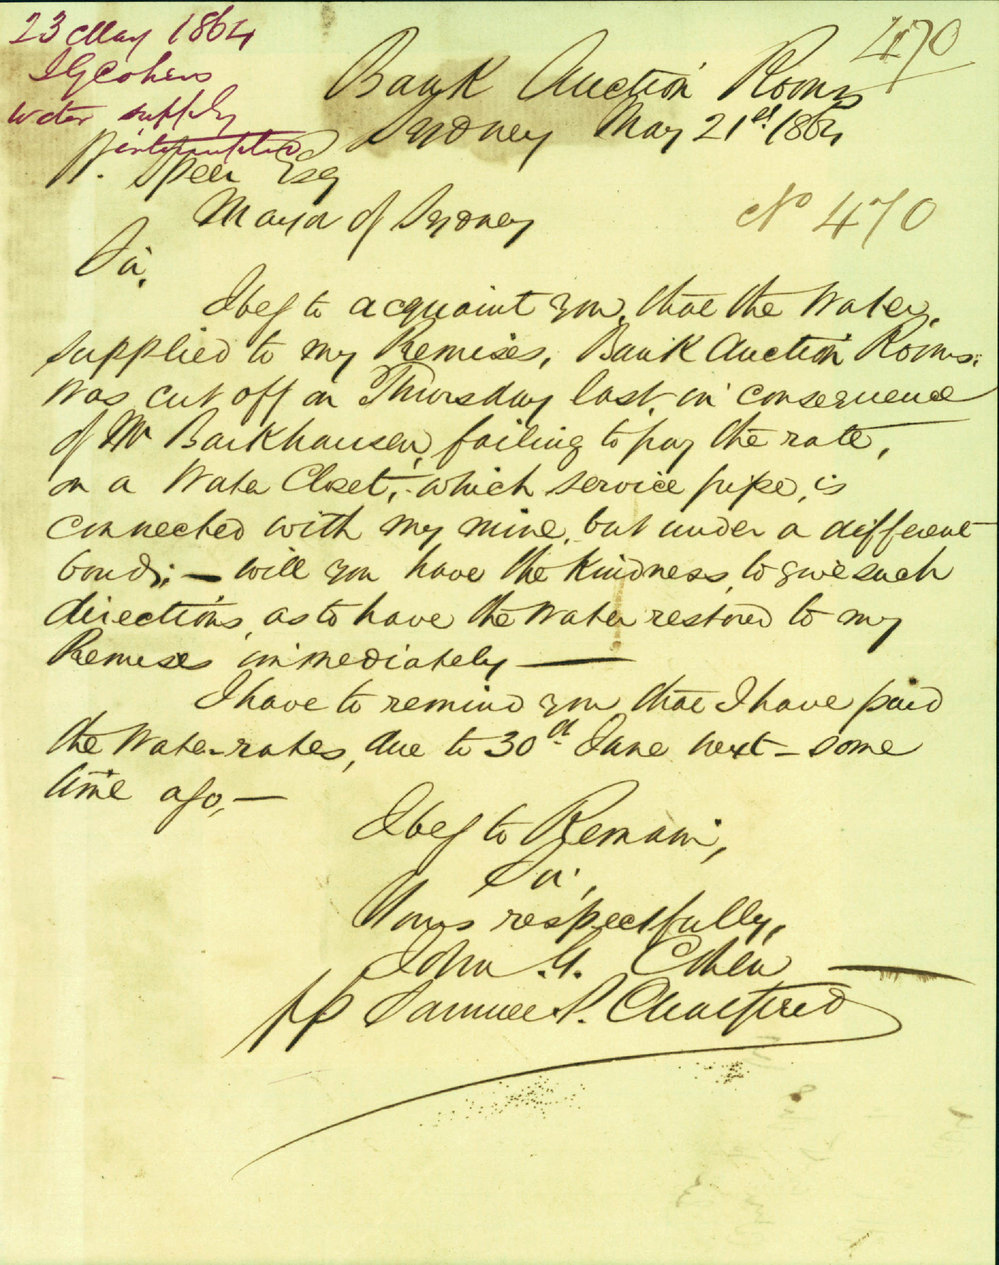 23 May 1864
J G Cohens
water supply
interruption
470
Bank Auction Rooms
Sydney May 21st 1864
W. Speer Esq
Mayor of Sydney
No 470
Sir,
I beg to acquaint you, that the Water,
supplied to my Premises, Bank Auction Rooms.
was cut off on Thursday last, in consequence
of Mr Barkhausen, failing to pay the rate,
on a Water Closet, which service pipe, is
connected with my mine, but under a different
bond; — will you have the kindness, to give such
directions, as to have the Water restored to my
Premises immediately —
I have to remind you that I have paid
the Water-rates, due to 30th June next - some
time ago, —
I beg to Remain,
Sir,
Yours respectfully,
John G. Cohen —
pp Samuel S.